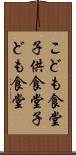 こども食堂
子供食堂子
ども食堂